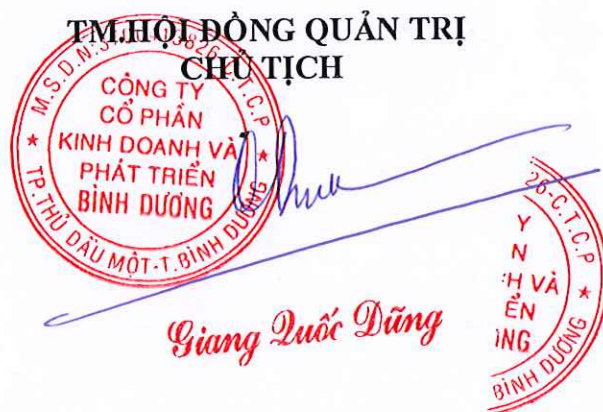 TM.HỘI ĐỒNG QUẢN TRỊ
CHỦ TỊCH
CÔNG TY
CỔ PHẦN
KINH DOANH VÀ
PHÁT TRIỂN
BÌNH DƯƠNG
TP.THỦ DẦU MỘT-T.BÌNH DƯƠNG
Giang Quốc Dũng
26-C.T.C.P
Y
N
H VÀ
ỂN
NG
BÌNH DƯƠNG